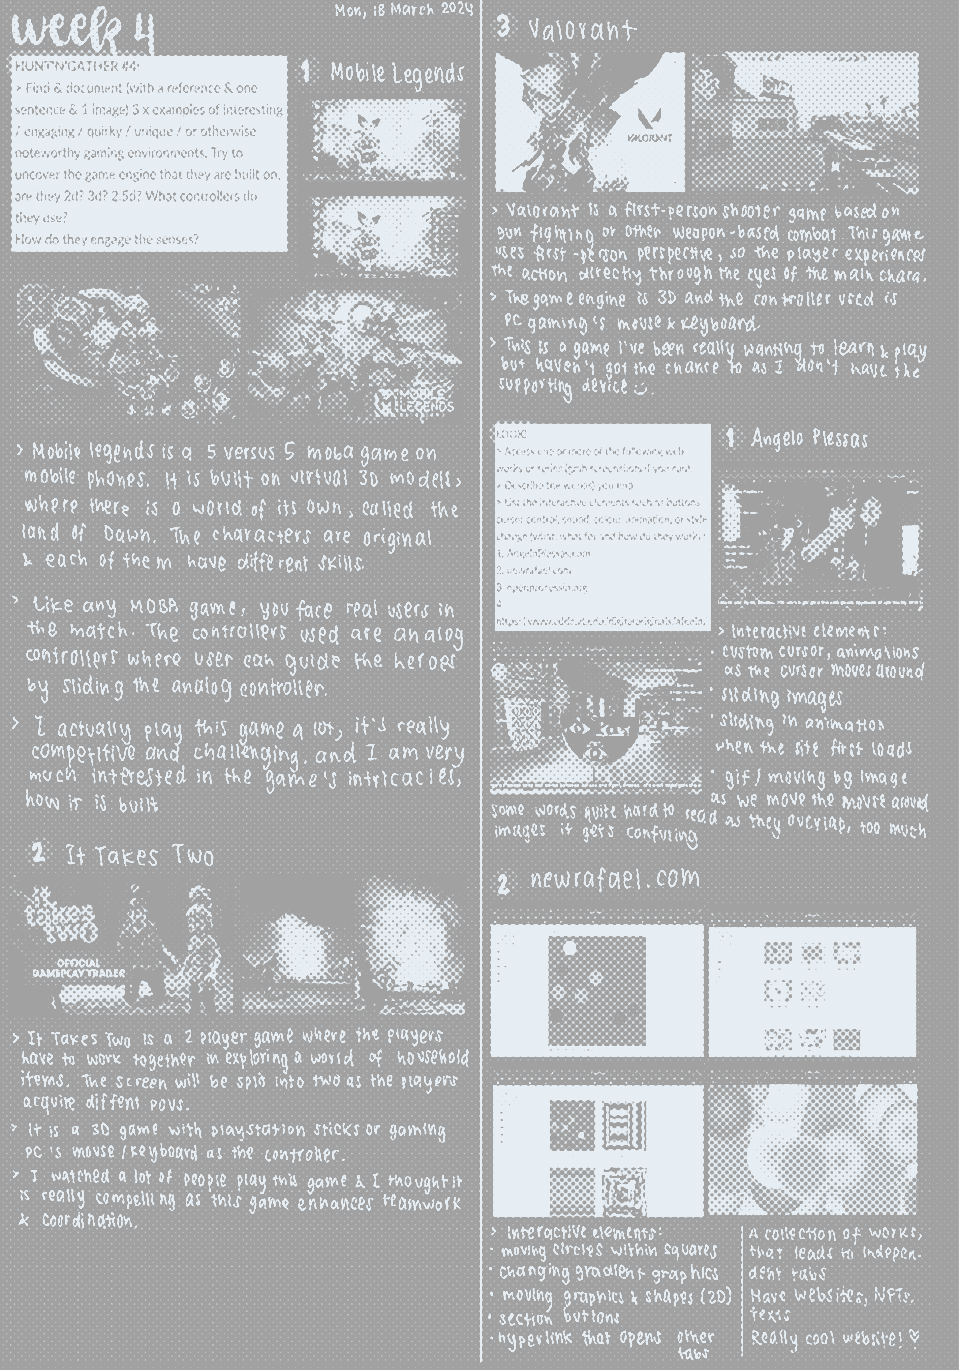 Mon, 18 March 2024
week 4
HUNT'N'GATHER #4:
> Find & document (with a reference & one
sentence & 1 image) 3 x examples of interesting
/ engaging / quirky / unique / or otherwise
noteworthy gaming environments. Try to
uncover the game engine that they are built on,
are they 2d? 3d? 2.5d? What controllers do
they use?
How do they engage the senses?
1 Mobile Legends
MOBILE
LEGENDS
> Mobile legends is a 5 versus 5 moba game on
mobile phones. It is built on virtual 3D models,
where there is a world of its own, called the
land of Dawn. The characters are original
& each of them have different skills.
> Like any MOBA game, you face real users in
the match. The controllers used are analog
controllers where user can guide the heroes
by sliding the analog controller.
> I actually play this game a lot, it's really
competitive and challenging, and I am very
much interested in the game's intricacies,
how it is built
2 It Takes Two
It
Takes
TWO
OFFICIAL
GAMEPLAY TRAILER
> It Takes Two is a 2 player game where the players
have to work together in exploring a world of household
items. The screen will be split into two as the players
acquire diffent povs.
> It is a 3D game with playstation sticks or gaming
PC's mouse/keyboard as the controller.
> I watched a lot of people play this game & I thought it
is really compelling as this game enhances teamwork
& coordination.
3 Valorant
VALORANT
> Valorant is a first-person shooter game based on
gun fighting or other weapon-based combat. This game
uses first-person perspective, so the player experiences
the action directly through the eyes of the main chara.
> The game engine is 3D and the controller used is
PC gaming's mouse & keyboard.
> This is a game I've been really wanting to learn & play
but haven't got the chance to as I don't have the
supporting device :).
> Access one or more of the following web
works or series (grab screenshots if you can)
> Describe the work(s) you find
> List the interactive elements such as buttons,
cursor control, sound, colour, animation, or style
1 Angelo Plessas
> Interactive elements:
• custom cursor, animations
as the cursor moves around
• sliding images
• sliding in animation
when the site first loads
• gif / moving bg image
as we move the mouse around
some words quite hard to read as they overlap, too much
images it gets confusing
2 newrafael.com
> Interactive elements:
• moving circles within squares
• changing gradient graphics
• moving graphics & shapes (2D)
• section buttons
• hyperlink that opens other
tabs
A collection of works,
that leads to indepen-
dent tabs
Have websites, NFTs,
texts
Really cool website! ♡